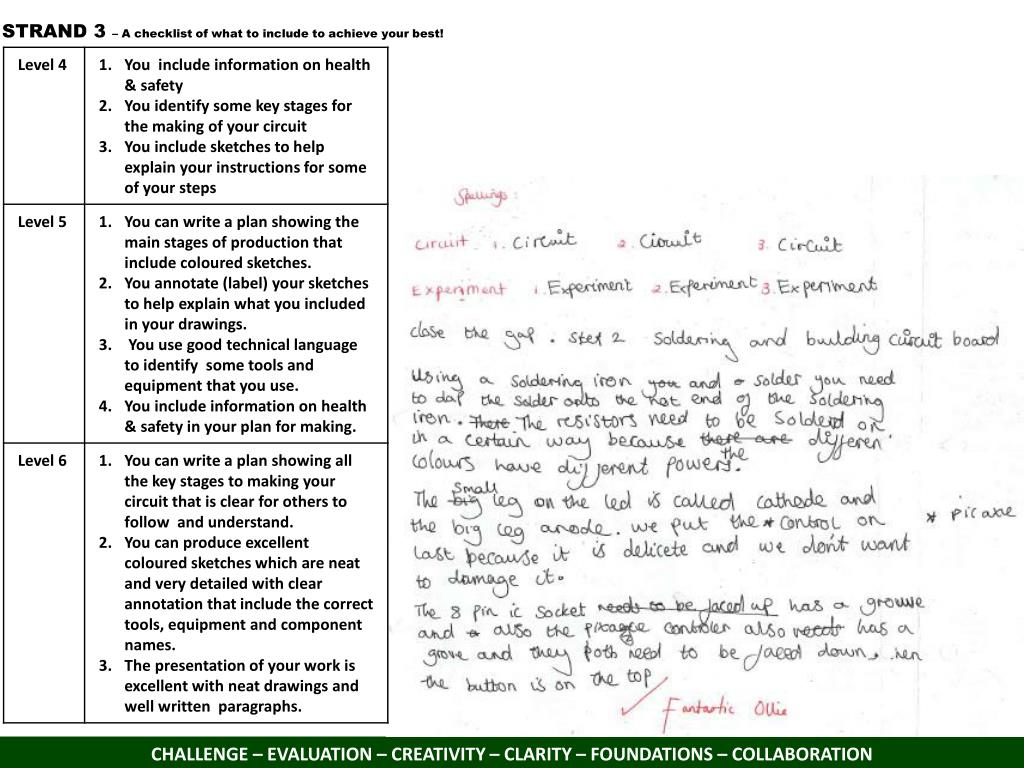 STRAND 3 – A checklist of what to include to achieve your best!
Level 4
1. You include information on health
& safety
2. You identify some key stages for
the making of your circuit
3. You include sketches to help
explain your instructions for some
of your steps
Level 5
1. You can write a plan showing the
main stages of production that
include coloured sketches.
2. You annotate (label) your sketches
to help explain what you included
in your drawings.
3. You use good technical language
to identify some tools and
equipment that you use.
4. You include information on health
& safety in your plan for making.
Level 6
1. You can write a plan showing all
the key stages to making your
circuit that is clear for others to
follow and understand.
2. You can produce excellent
coloured sketches which are neat
and very detailed with clear
annotation that include the correct
tools, equipment and component
names.
3. The presentation of your work is
excellent with neat drawings and
well written paragraphs.
Spellings:
Circuit 1. Circuit 2. Circuit 3. Circuit
Experiment 1. Experiment 2. Experiment 3. Experiment
close the gap. Step 2 Soldering and building circuit board
Using a soldering iron and solder you need
to dap the solder onto the hot end of the soldering
iron. There The resistors need to be on
in a certain way because there are differen
the
colours have different powers.
Small
The big leg on the led is called cathode and
the big leg anode. we put the * control on
* picaxe
last because it is delicete and we don't want
to damage it.
The 8 pin ic socket needs to be faced up has a
and also the controler also needs has a
grove and they both need to be faced down.
the button is on the top
Fantastic Ollie
CHALLENGE – EVALUATION – CREATIVITY – CLARITY – FOUNDATIONS – COLLABORATION